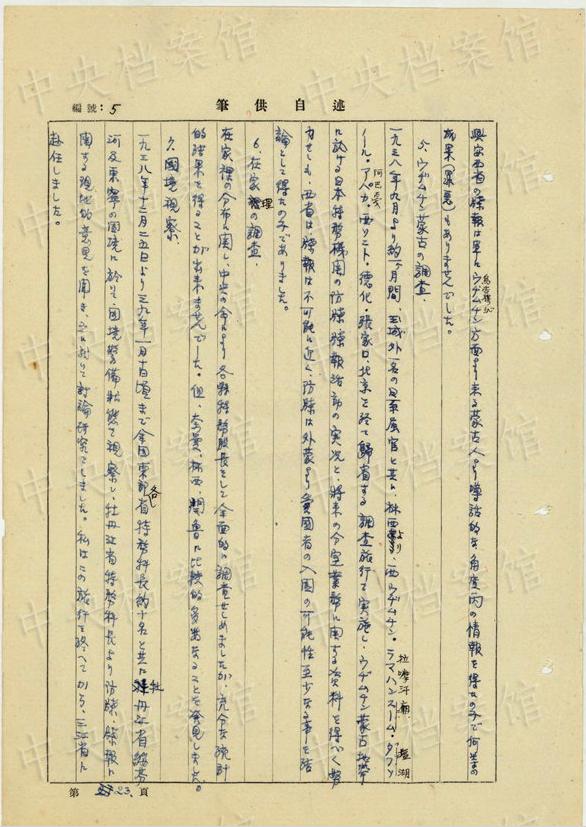 述自供筆
編號：5
興安西省の諜報は単にウヂムチン方面より来る蒙古人より噂話的な角度内の情報を得たのみで何等の
烏古穆沁
成果（罪悪）もありませんでした。
5、ウヂムチン蒙古の調査、
一九三八年九月より約一ヶ月間、外一名の日系属官と共に、林西より西ウヂムチン・ラマハンスーム・ダブソ
喇嘛汗廟
塩湖
ノール・アパカ・西ソニト・徳化・張家口、北京を経て帰省する調査旅行を実施し、ウヂムチン蒙古地帯
阿巴戛
に於ける日本特務機関の防諜諜報活動の実況と、将来の分室業務に関する資料を得べく努
力せしも、西省は諜報は不可能に近く、防諜は外蒙より愛国者の入国の可能性至少なる事を結
論として得たのみでありました。
6、在家裡の調査、
理
在家裡の分布に関し、中央の命により各縣特務股長をして全面的に調査せしめましたが、充分な統計
的結果を得ることが出来ませんでした。但、林西、開魯に比較的多きことを発見しました。
7、国境視察、
一九三八年十二月二五日より三九年一月十日頃まで全国東部各省特務科長約十名と共に牡丹江省綏芬
河及東寧の国境に於いて国境警備状態を視察し、牡丹江省特務科長より防諜、諜報に
関する現地的意見を聞き、これに対して討論研究をしました。私はこの旅行を終へてから、三江省に
赴任しました。
第 23 頁
中央档案馆
中央档案馆
中央档案馆
中央档案馆